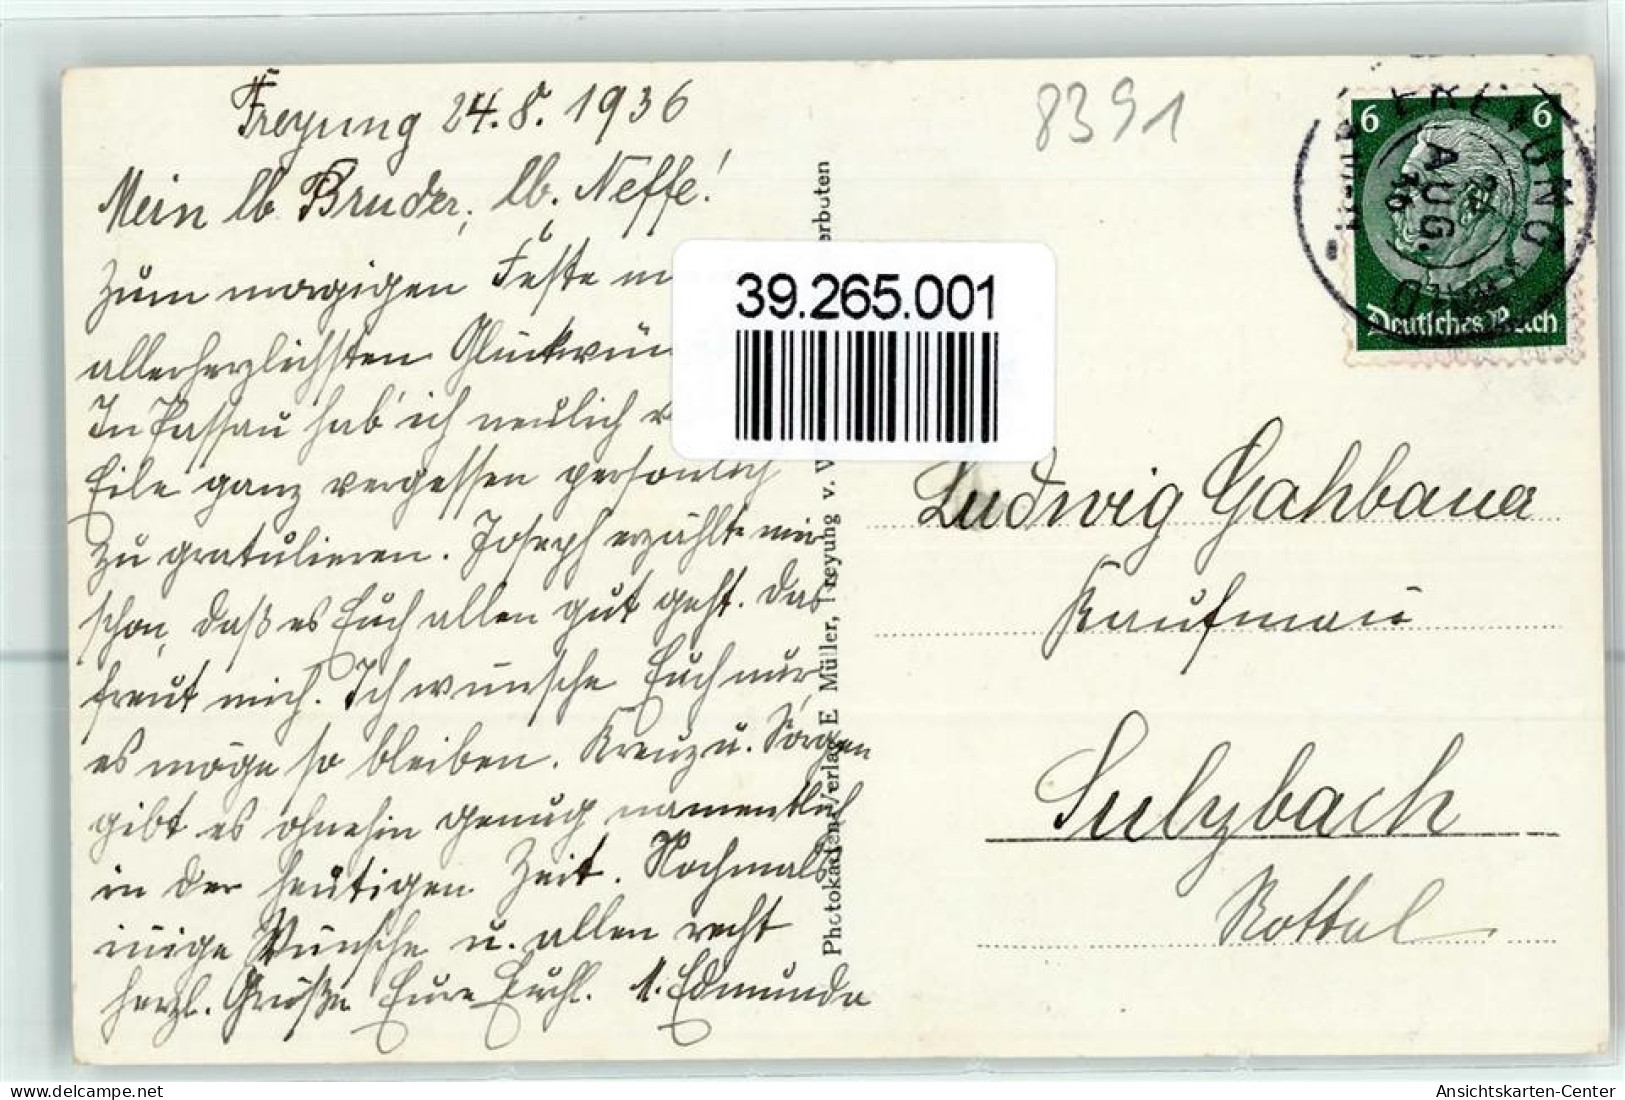 Freyung 24.8.1936
Mein lb Bruder, lb. Neffe!
Zum morgigen Feste
allerherzlichsten
In Passau hab' ich neulich
Eile ganz vergessen persönlich
zu gratulieren. Joseph erzählte mir
schon, daß es Euch allen gut geht. Das
freut mich. Ich wünsche Euch nur
es möge so bleiben. Kreuz u. Sorgen
gibt es ohnehin genug namentlich
in der heutigen Zeit. Nochmals
innige Wünsche u. allen recht
herzl. Grüße Eure M. Edmunda
8391
6 6
FREYUNG
AUG.
36
WALD
Deutsches Reich
39.265.001
Photokarten-Verlag E Müller, Freyung v. W erboten
Ludwig Gahbauer
Kaufmann
Sulzbach
Rottal
www.delcampe.net
Ansichtskarten-Center